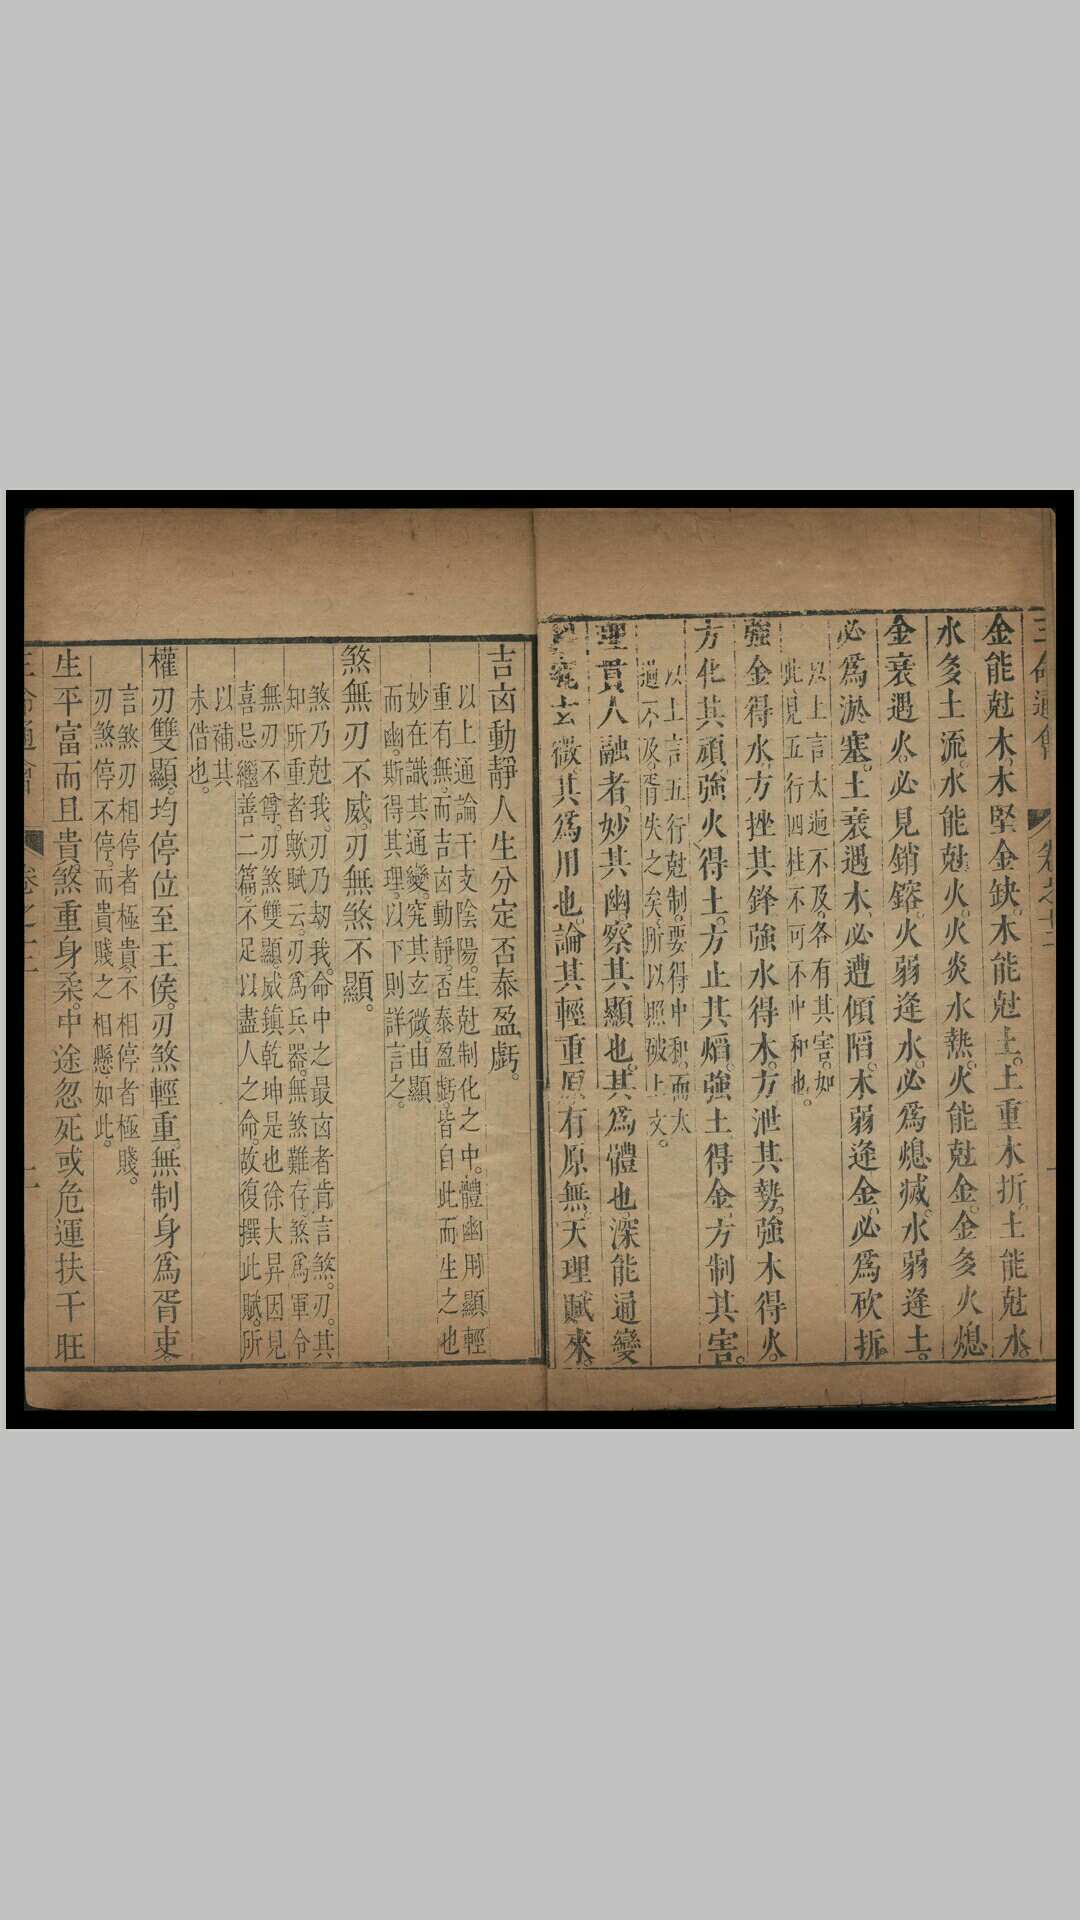 三命通會 卷之十二
金能尅木。木堅金缺。木能尅土。土重木折。土能尅水。
水多土流。水能尅火。火炎水熱。火能尅金。金多火熄。
金衰遇火。必見銷鎔。火弱逢水。必爲熄滅。水弱逢土。
必爲淤塞。土衰遇木。必遭傾陷。木弱逢金。必爲砍折。
以上言太過不及。各有其害。如
此見五行四柱不可不中和也。
強金得水。方挫其鋒。強水得木。方泄其勢。強木得火。
方化其頑。強火得土。方止其熖。強土得金。方制其害。
以上言五行尅制。要得中和。而太
過不及。胥失之矣。所以照破上文。
理貫人融者。妙其幽。察其顯也。其爲體也。深能通變
究玄微。其爲用也。論其輕重。原有原無。天理賦來。
吉卤動靜。人生分定否泰盈虧。
以上通論干支陰陽。生尅制化之中。體幽用顯。輕
重有無。而吉卤動靜。否泰盈虧。皆自此而生之也
妙在識其通變。究其玄微。由顯
而幽。斯得其理。以下則詳言之。
煞無刃不威。刃無煞不顯。
煞乃尅我。刃乃劫我。命中之最卤者。肯言煞。刃。其
知所重者歟。賦云。刃爲兵器。無煞難存。煞爲軍令
無刃不尊。刃煞雙顯。威鎮乾坤是也。徐大昇因見
喜忌繼善二篇。不足以盡人之命。故復撰此賦。所
以補其
未俻也。
權刃雙顯。均停位至王侯。刃煞輕重。無制身爲胥吏。
言煞刃相停者極貴。不相停者極賤。
刃煞停不停。而貴賤之相懸如此。
生平富而且貴。煞重身柔。中途忽死或危。運扶干旺
三命通會 卷之十二